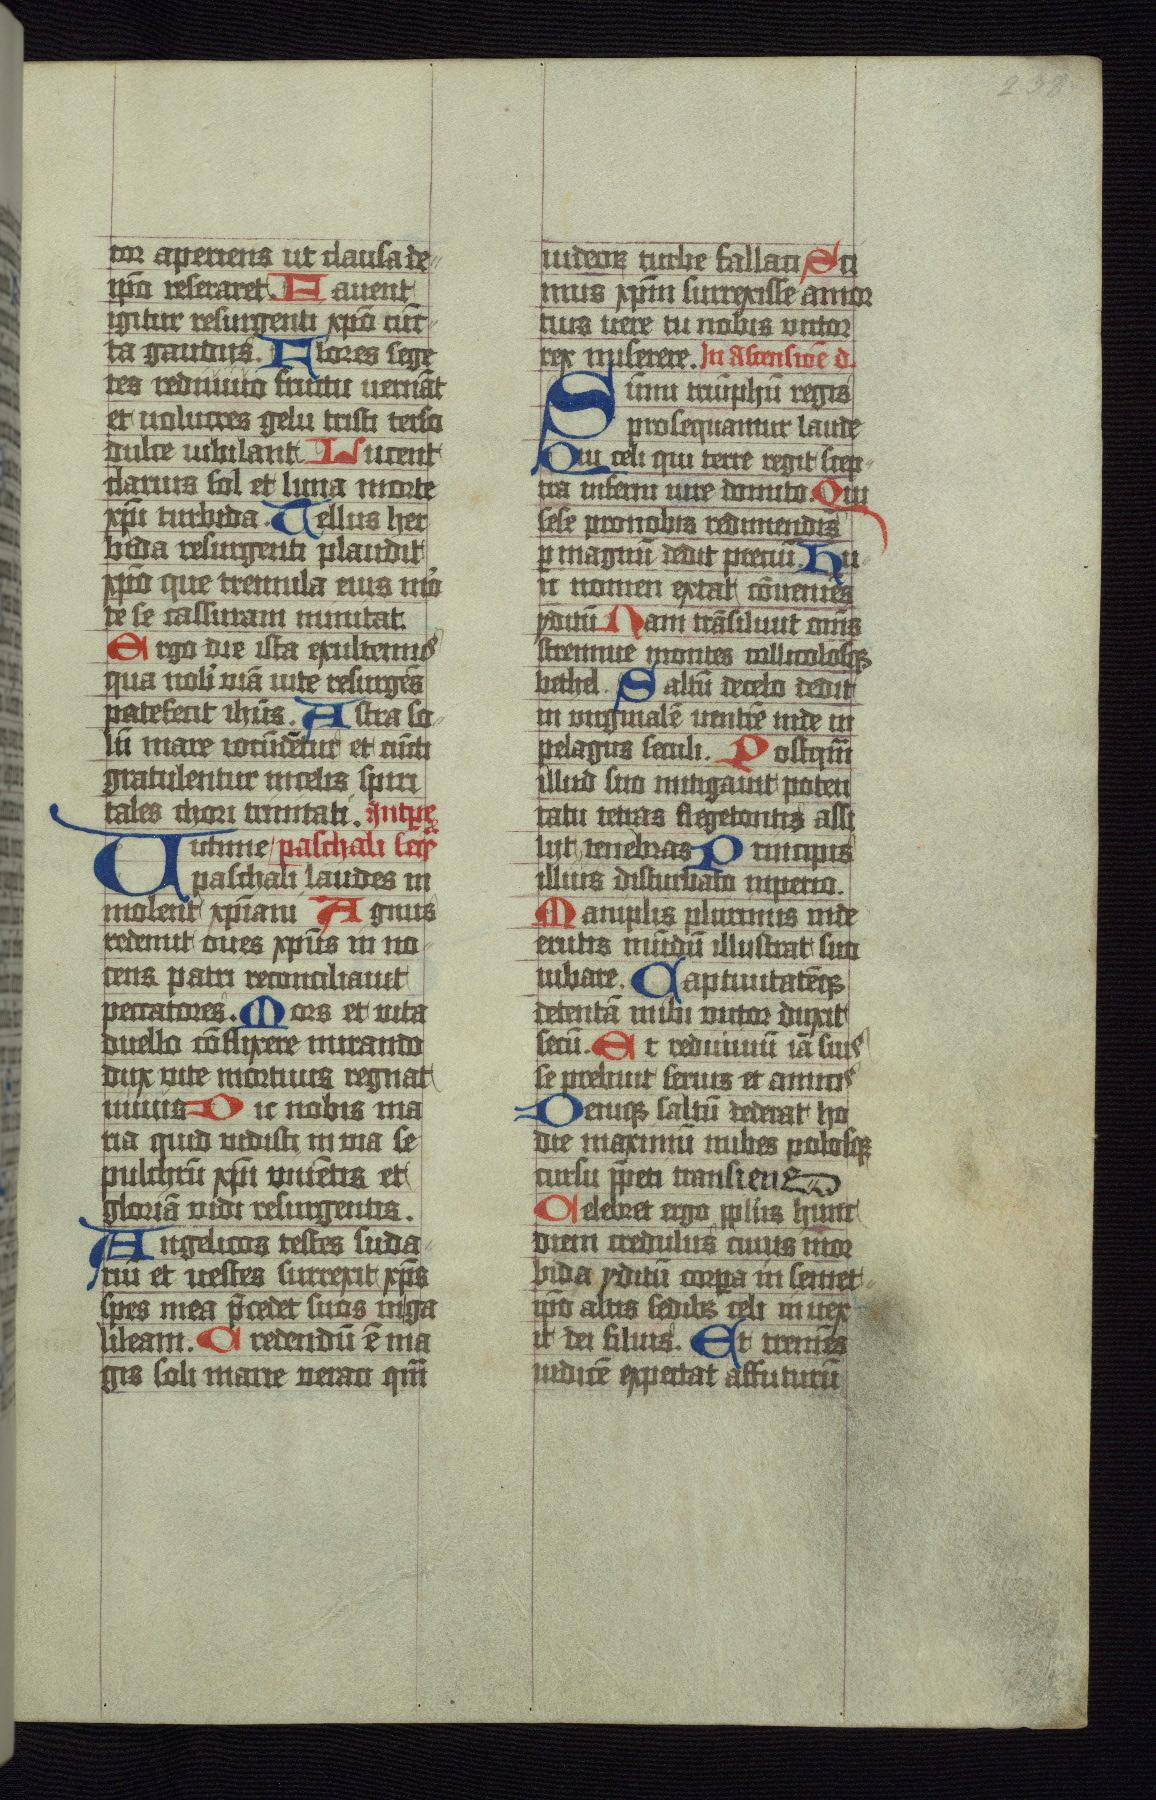 238
tor aperiens ut clausa de
ip̄o reseraret. Fauent
igitur resurgenti xp̄o cūc
ta gaudiis. Flores sege
tes rediuiuo fructu uernāt
et uolucres gelu tristi terso
dulce iubilant. Lucent
clarius sol et luna morte
xp̄i turbida. Tellus her
bida resurgenti plaudit
xp̄o que tremula eius mo
te se casuram minitat.
Ergo die ista exultemus
qua nob̄ uiā uite resurgēs
patefecit ih̄us. Astra so
lū mare iocūdētur et cūcti
gratulentur in celis spiri
tales chori trinitati.
Uictime paschali
paschali laudes im
molent xp̄iani Agnus
redemit oues xp̄us in no
cens patri reconciliauit
peccatores. Mors et uita
duello cōflixere mirando
dux uite mortuus regnat
uiuus Dic nobis ma
ria quid uidisti in uia se
pulchrū xp̄i uiuētis et
gloriā uidi resurgentis.
Angelicos testes suda
riū et uestes surrexit xp̄s
spes mea p̄cedet suos in ga
lileam. Credendū ē ma
gis soli marie ueraci qm̄
iudeoꝝ turbe fallaci Sci
mus xp̄m surrexisse a mor
tuis uere tu nobis uictor
rex miserere. In Ascensiōe d.
Sūmi triūphū regis
prosequamur laude
Qui celi qui terre regit scep
tra inferni iure domito. Qui
sese pro nobis redimendis
p magnū dedit preciū. Hu
ic nomen extat cōueniēs
yditū Nam trāsiliuit om̄s
strennue montes colliculosqꝫ
bethel. Saltū de celo dedit
in uirginalē uentrē inde in
pelagus seculi. Postqm̄
illud suo mitigauit poten
tatu tetras flegetontis assi
liit tenebras Principis
illius disturbato inperio.
Maniplis plurimis inde
erutis mūdū illustrat suo
iubare. Captiuitatēqꝫ
detentā inibi uictor duxit
secū. Et rediuiuū iā suis
se prebuit seruis et amicis
Deniqꝫ saltū dederat ho
die maximū nubes polosqꝫ
cursu p̄peti transiens
Celebret ergo pp̄lus hunc
diem credulus cuius mor
bida yditū corpa in semet
ip̄o altis sedibꝫ celi inuex
it dei filius. Et tremēs
iudicē expectat affuturū